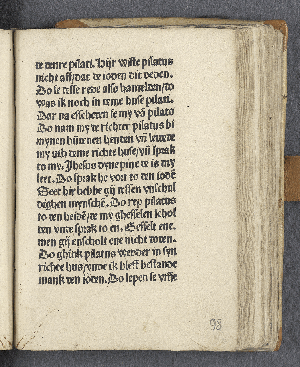 te tenre pilati. Hijr wiste pilatus
nicht aff/dat de ioden dit deden.
Do se iesse rede also handelden/do
was ik noch in teme huse pilati.
Dar na escheden se my vā pilato
Do nam my de richter pilatus bi
mynen henden vñ leyde
my vth deme richte huse/vñ sprak
to my. Jhesus dyne pine is my
leet. Do sprak he vort to den iodē
Seet hir hebbe gij dessen vnschul
dighen mynschē. Do rep pilatus
to den heidē/de my gheselen scholden
vnde sprak to en. Geselt ene
men gij en scholt ene nicht doden.
Do ghink pilatus wedder in syn
richte hus/vnde ik bleff bestande
mank den ioden. Do lepen se
98